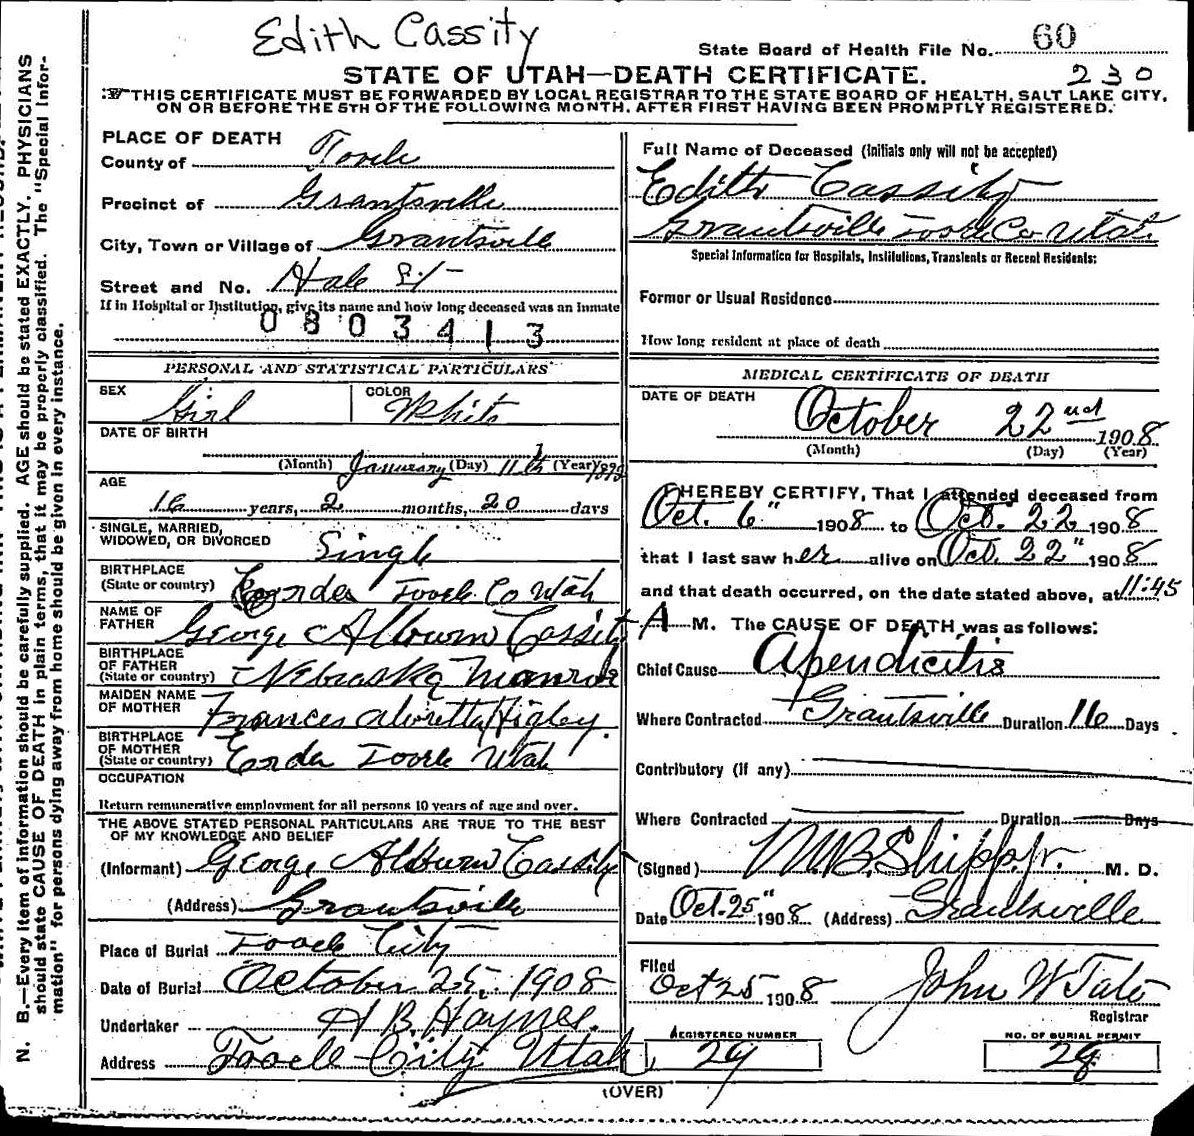 Edith Cassity
State Board of Health File No. 60
STATE OF UTAH—DEATH CERTIFICATE. 230
THIS CERTIFICATE MUST BE FORWARDED BY LOCAL REGISTRAR TO THE STATE BOARD OF HEALTH, SALT LAKE CITY,
ON OR BEFORE THE 5TH OF THE FOLLOWING MONTH, AFTER FIRST HAVING BEEN PROMPTLY REGISTERED.
PLACE OF DEATH
County of Tooele
Precinct of Grantsville
City, Town or Village of Grantsville
Street and No. Hale St
If in Hospital or Institution, give its name and how long deceased was an inmate
0803413
PERSONAL AND STATISTICAL PARTICULARS
SEX Girl COLOR White
DATE OF BIRTH
(Month) January (Day) 11th (Year)
AGE
16 years, 2 months, 20 days
SINGLE, MARRIED,
WIDOWED, OR DIVORCED Single
BIRTHPLACE
(State or country) Tooele Co Utah
NAME OF
FATHER George Alburn Cassity
BIRTHPLACE
OF FATHER
(State or country) Nebraska Monroe
MAIDEN NAME
OF MOTHER Frances Higley.
BIRTHPLACE
OF MOTHER
(State or country) Tooele Utah
OCCUPATION
Return remunerative employment for all persons 10 years of age and over.
THE ABOVE STATED PERSONAL PARTICULARS ARE TRUE TO THE BEST
OF MY KNOWLEDGE AND BELIEF
(Informant) George Alburn Cassity
(Address) Grantsville
Place of Burial Tooele City
Date of Burial October 25, 1908
Undertaker A B. Haynes.
Address Tooele City Utah
Full Name of Deceased (Initials only will not be accepted)
Edith Cassity
Grantsville Tooele Co Utah
Special Information for Hospitals, Institutions, Transients or Recent Residents:
Former or Usual Residence
How long resident at place of death
MEDICAL CERTIFICATE OF DEATH
DATE OF DEATH
October 22nd 1908
(Month) (Day) (Year)
I HEREBY CERTIFY, That I attended deceased from
Oct. 6" 1908 to Oct. 22 1908
that I last saw her alive on Oct. 22" 1908
and that death occurred, on the date stated above, at 11:45
A M. The CAUSE OF DEATH was as follows:
Chief Cause Apendicitis
Where Contracted Grantsville Duration 16 Days
Contributory (if any)
Where Contracted Duration Days
(Signed) M.B. Shipp Jr. M. D.
Date Oct. 25" 1908 (Address) Grantsville
Filed
Oct 25 1908 John W Tate
Registrar
REGISTERED NUMBER
29
NO. OF BURIAL PERMIT
28
(OVER)
N. B.—Every item of information should be carefully supplied. AGE should be stated EXACTLY. PHYSICIANS
should state CAUSE OF DEATH in plain terms, that it may be properly classified. The "Special Infor-
mation" for persons dying away from home should be given in every instance.